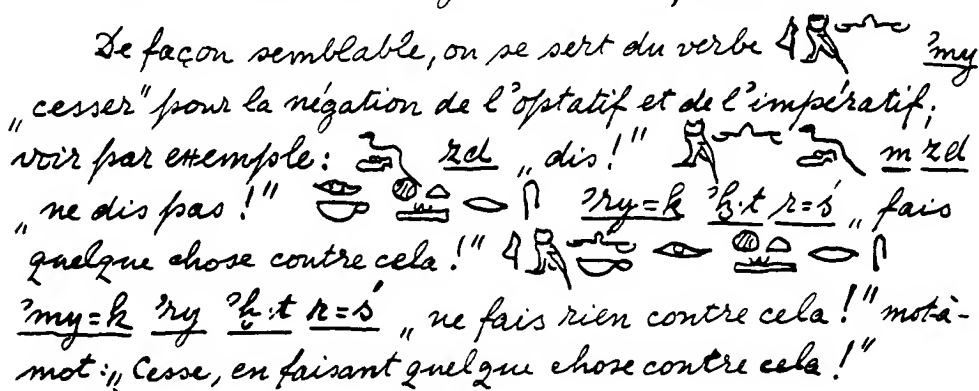 De façon semblable, on se sert du verbe 𓇋𓅓𓂜 ʾmy
„cesser" pour la négation de l'optatif et de l'impératif;
voir par exemple: zd „dis!" 𓅓𓂜 m zd
„ne dis pas!" ʾry=k ʾḫ.t r=ś „fais
quelque chose contre cela!"
ʾmy=k ʾry ʾḫ.t r=ś „ne fais rien contre cela!" mot-à-
mot: „Cesse, en faisant quelque chose contre cela!"